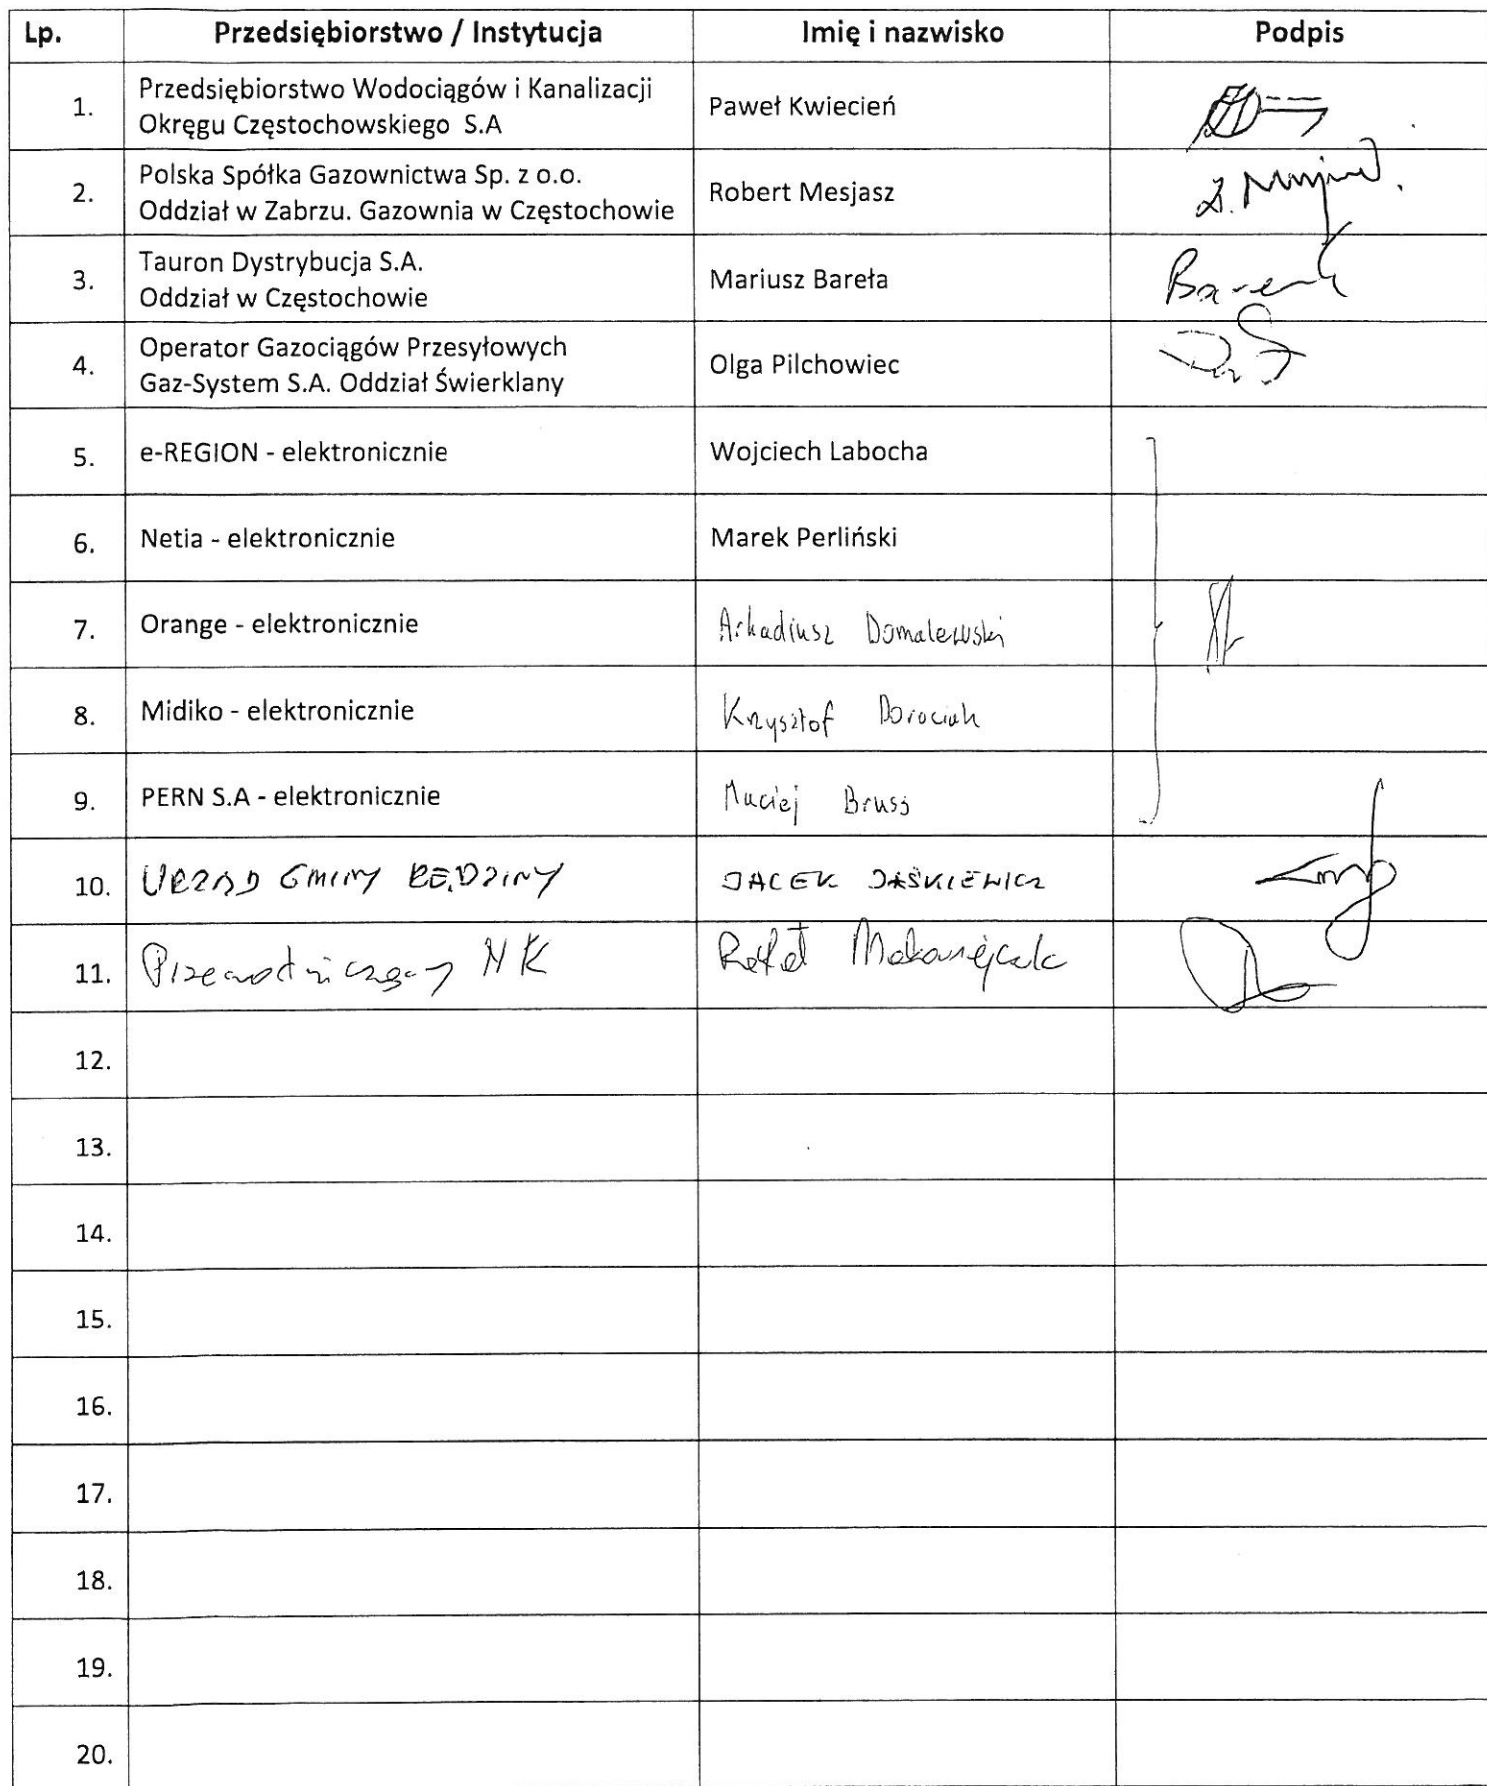 Lp. Przedsiębiorstwo / Instytucja Imię i nazwisko Podpis
1. Przedsiębiorstwo Wodociągów i Kanalizacji
Okręgu Częstochowskiego S.A Paweł Kwiecień
2. Polska Spółka Gazownictwa Sp. z o.o.
Oddział w Zabrzu. Gazownia w Częstochowie Robert Mesjasz
3. Tauron Dystrybucja S.A.
Oddział w Częstochowie Mariusz Bareła
4. Operator Gazociągów Przesyłowych
Gaz-System S.A. Oddział Świerklany Olga Pilchowiec
5. e-REGION - elektronicznie Wojciech Labocha
6. Netia - elektronicznie Marek Perliński
7. Orange - elektronicznie Arkadiusz Domalewski
8. Midiko - elektronicznie Krzysztof Dorociak
9. PERN S.A - elektronicznie Maciej Bruss
10. URZĄD GMINY RĘDZINY JACEK JAŚKIEWICZ
11. Przewodniczący NK Rafał
12.
13.
14.
15.
16.
17.
18.
19.
20.